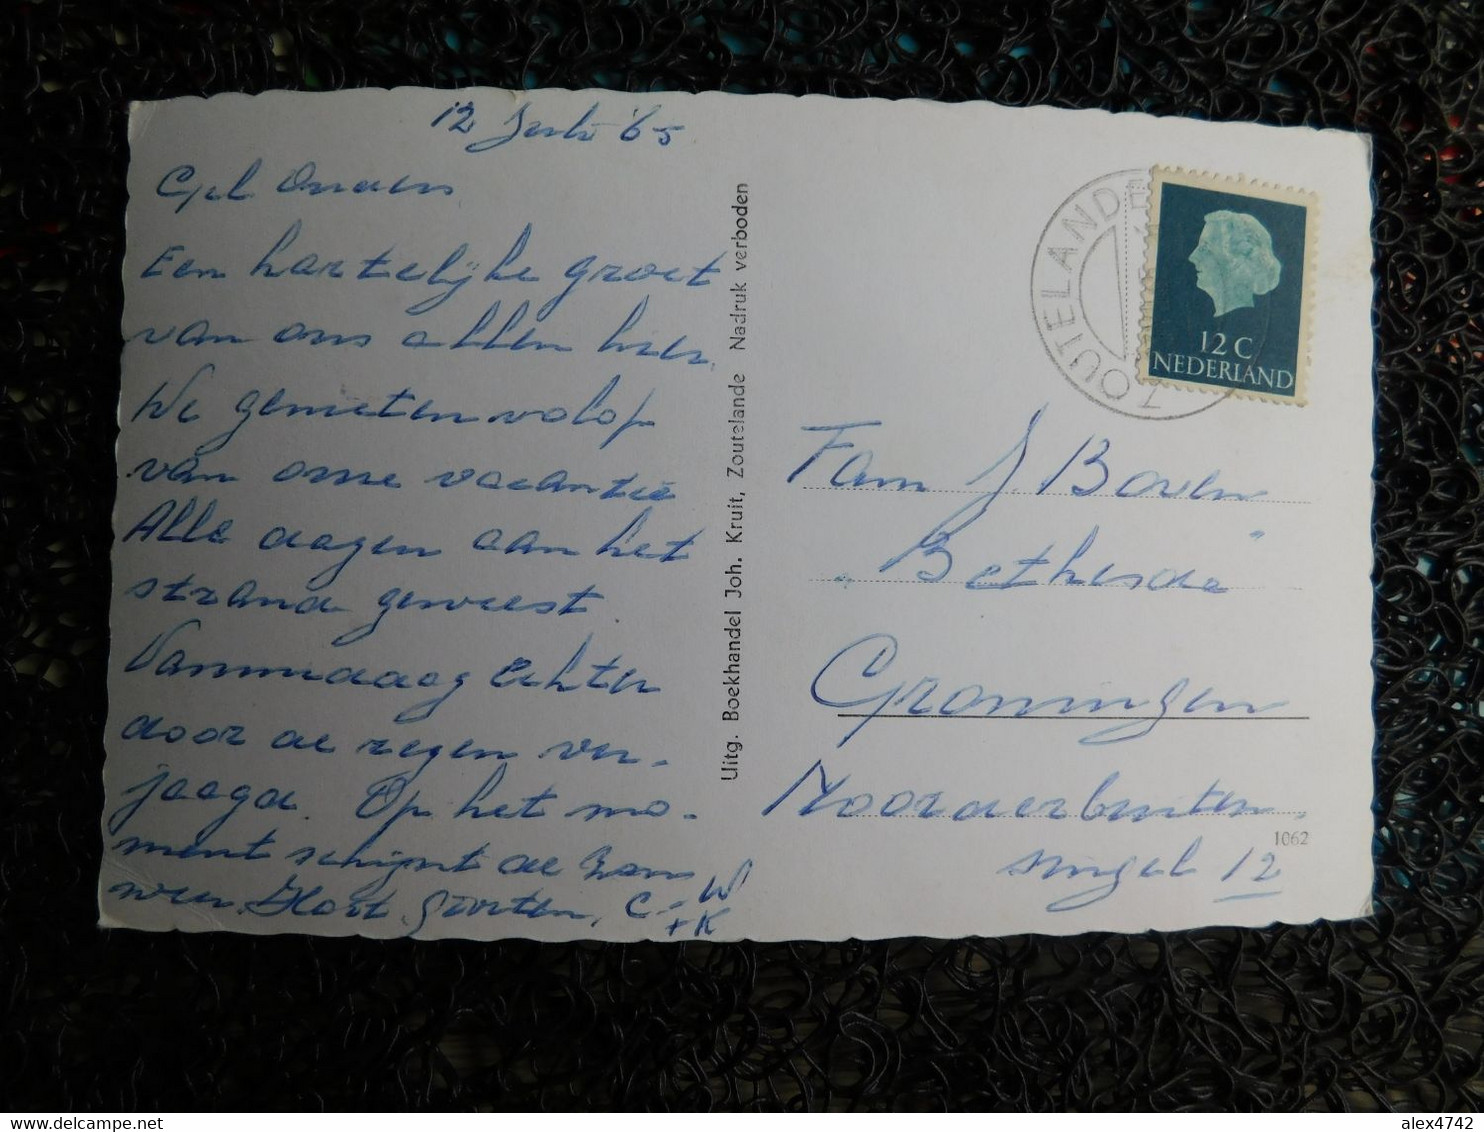 12 Juli '65
Gel. Ouders
Een hartelijke groet
van ons allen hier.
We genieten volop
van onze vacantie
Alle dagen aan het
strand geweest.
Vanmiddag echter
door de regen ver-
jaagd. Op het mo-
ment schijnt de zon
weer. Hart. groeten, C. W
+ K
Uitg. Boekhandel Joh. Kruit, Zoutelande Nadruk verboden
ZOUTELANDE
12 C
NEDERLAND
Fam J. Boven
„Bethesda"
Groningen
Noorderbuiten-
singel 12
1062
delcampe.net
alex4742